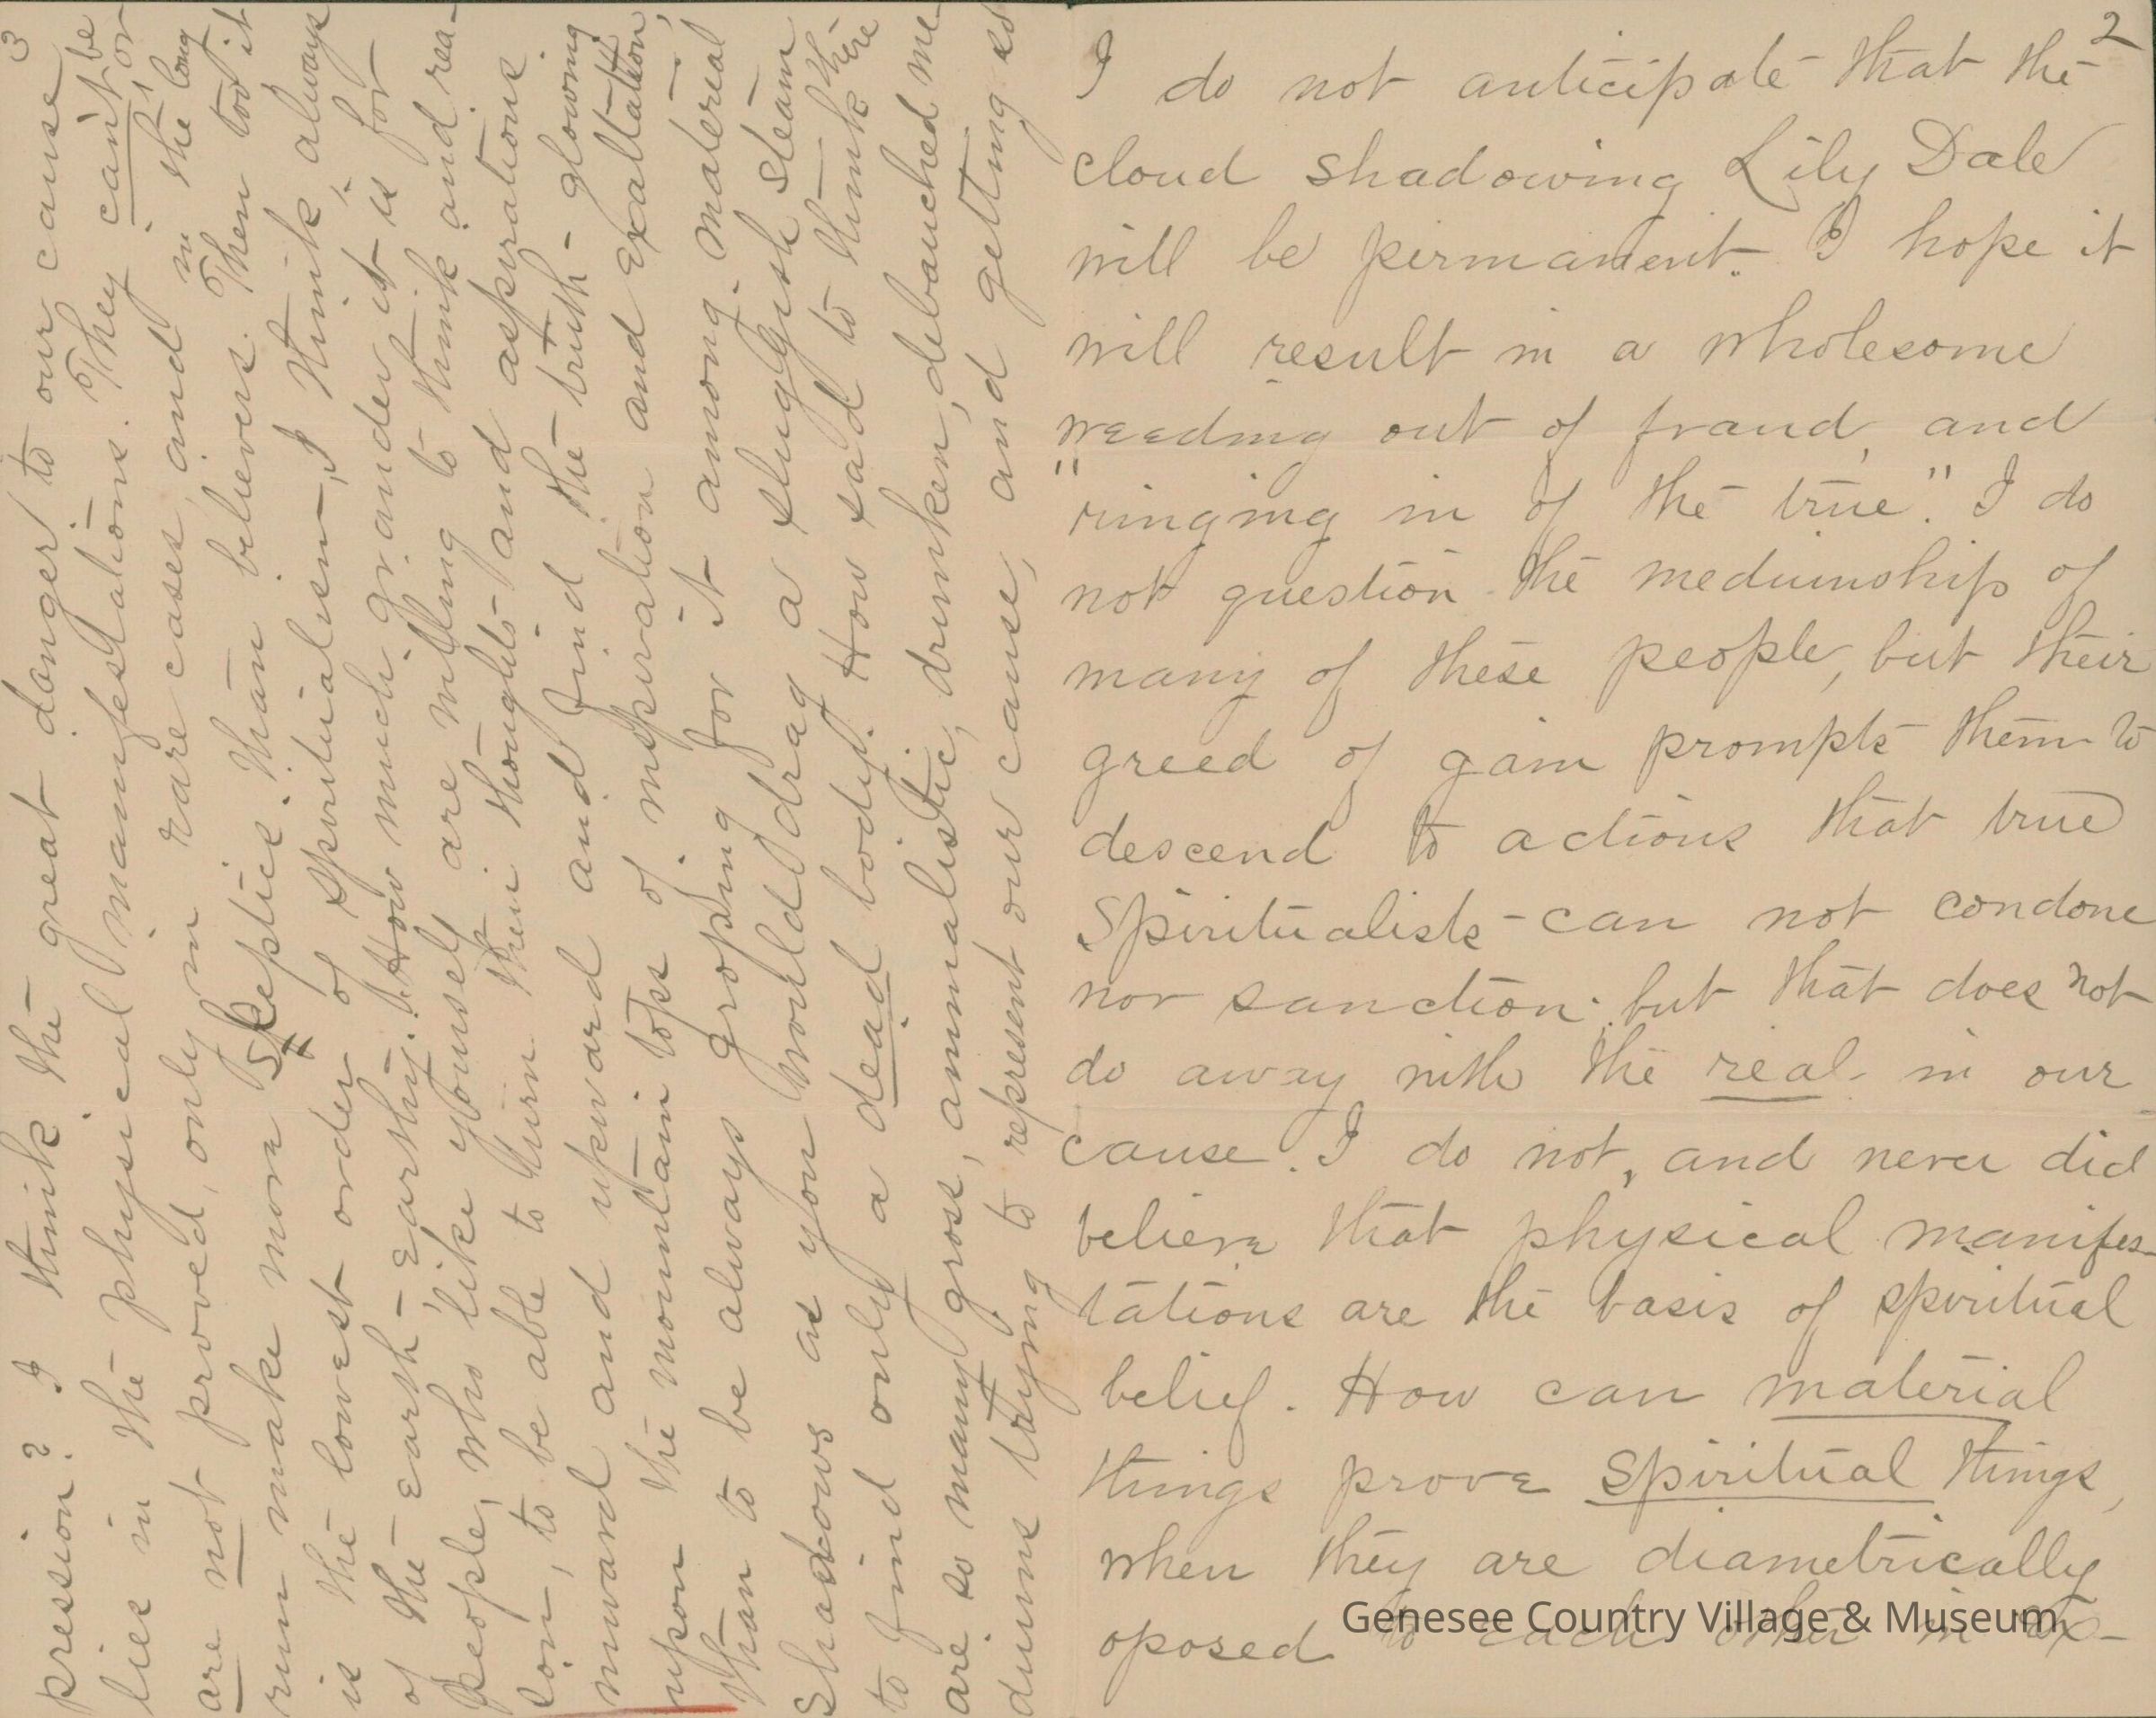 2
I do not anticipate that the
cloud shadowing Lily Dale
will be permanent. I hope it
will result in a wholesome
weeding out of fraud, and
"ringing in of the true". I do
not question the mediumship of
many of these people, but their
greed of gain prompts them to
descend to actions that true
Spiritualists - can not condone
nor sanction; but that does not
do away with the real in our
cause. I do not, and never did
believe that physical manifes-
tations are the basis of spiritual
belief. How can material
things prove spiritual things,
when they are diametrically
oposed to each other in ex-
Genesee Country Village & Museum
3
pression? I think the great danger to our cause
lies in the physical manifestations. They can't be
are not proved, only in rare cases, and in the long
run make more Skeptics than believers. Then too it
is the lowest order of Spiritualism, I think, always
of the earth - earthy. How much grander it is for
people, who like yourself are willing to think and rea-
son, to be able to turn their thoughts and aspirations
inward and upward and find the truth - glowing
upon the mountain tops of inspiration and exaltation,
than to be always groping for it among material
Shadows as you would drag a sluggish steam
to find only a dead body. How sad to think there
are so many gross, animalistic, drunken, debauched me-
diums trying to represent our cause, and getting so